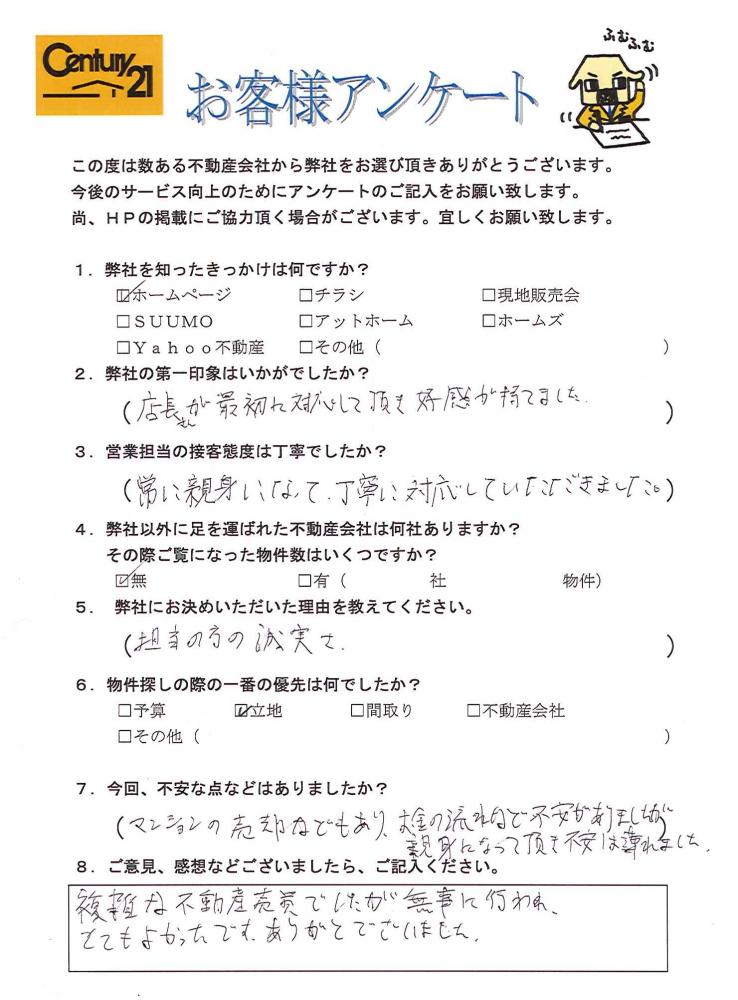 Century 21
ふむふむ
お客様アンケート
この度は数ある不動産会社から弊社をお選び頂きありがとうございます。
今後のサービス向上のためにアンケートのご記入をお願い致します。
尚、HPの掲載にご協力頂く場合がございます。宜しくお願い致します。
1．弊社を知ったきっかけは何ですか？
☑ホームページ □チラシ □現地販売会
□SUUMO □アットホーム □ホームズ
□Yahoo不動産 □その他（ ）
2．弊社の第一印象はいかがでしたか？
（店長さんが最初に対応して頂き好感が持てました.）
3．営業担当の接客態度は丁寧でしたか？
（常に親身になって、丁寧に対応していただきました。）
4．弊社以外に足を運ばれた不動産会社は何社ありますか？
その際ご覧になった物件数はいくつですか？
☑無 □有（ 社 物件）
5． 弊社にお決めいただいた理由を教えてください。
（担当の方の誠実さ.）
6．物件探しの際の一番の優先は何でしたか？
□予算 ☑立地 □間取り □不動産会社
□その他（ ）
7．今回、不安な点などはありましたか？
（マンションの売却などもあり、お金の流れなど不安がありましたが
親身になって頂き不安は薄れました.）
8．ご意見、感想などございましたら、ご記入ください。
複雑な不動産売買でしたが無事に行われ、
とてもよかったです.ありがとうございました.